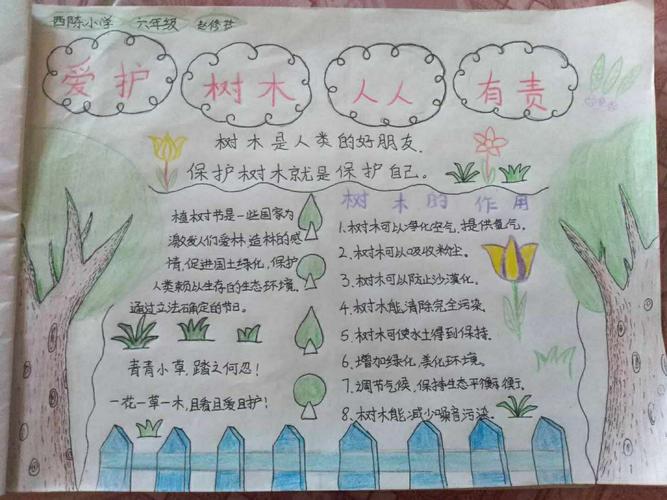 西陈小学 六年级 赵修
爱护 树木 人人 有责
树木是人类的好朋友.
保护树木就是保护自己。
植树节是一些国家为
激发人们爱林、造林的感
情,促进国土绿化,保护
人类赖以生存的生态环境,
通过立法确定的节日。
青青小草,踏之何忍!
一花一草一木,且看且爱且护!
树木的作用
1.树木可以净化空气,提供氧气。
2.树木可以吸收粉尘。
3.树木可以防止沙漠化。
4.树木能清除完全污染。
5.树木可使水土得到保持。
6.增加绿化,美化环境。
7.调节气候,保持生态平衡衡。
8.树木能减少噪音污染。